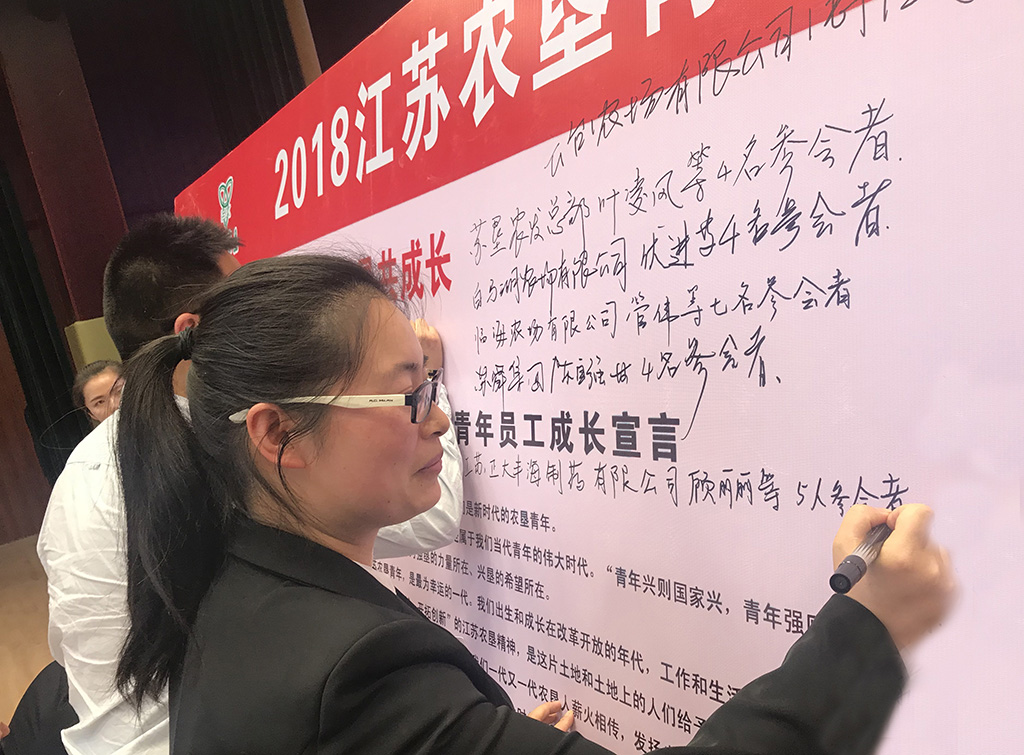 2018江苏农垦青
共成长
云台农场有限公司
苏垦农发总部叶凌风等4名参会者.
有限公司 伏进等4名参会者.
临海农场有限公司 管伟等七名参会者
4名参会者、
青年员工成长宣言
江苏正大丰海制药有限公司顾丽丽等 5人参会者
们是新时代的农垦青年。
属于我们当代青年的伟大时代。“青年兴则国家兴，青年强
农垦的力量所在、兴垦的希望所在。
农垦青年，是最为幸运的一代。我们出生和成长在改革开放的年代，工作和生活
开拓创新”的江苏农垦精神，是这片土地和土地上的人们给予
们一代又一代农垦人薪火相传，发扬